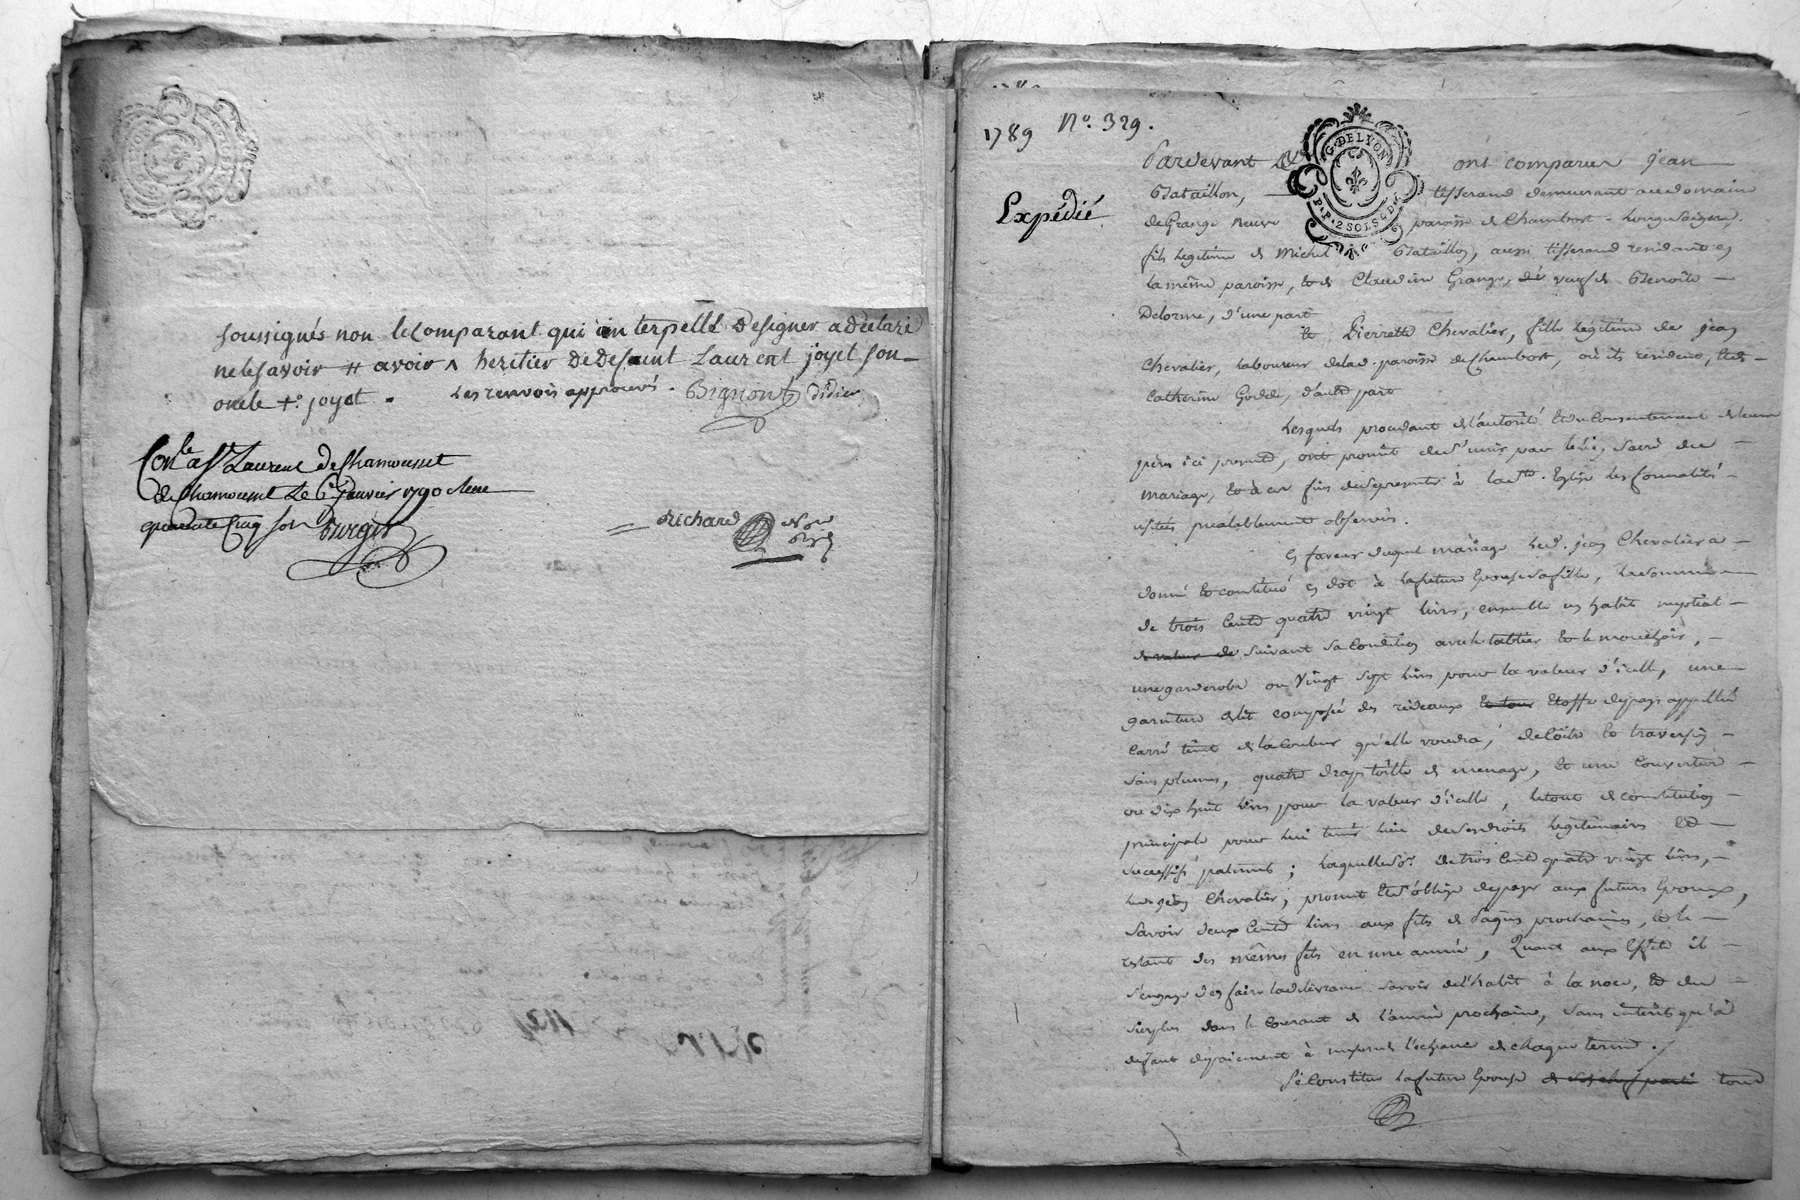 soussignés non le Comparant qui in terpellé De signer a Declaré
ne le savoir # avoir ^ heritier De Defaunt Laurent joyet son
oncle +. joyet. Les renvois approuvés. Bignon Didier
Con.le a St Laurent de Chamousset
de Chamousset Le 6e janvier 1790
quarante Cinq sols
Richard
1789 No. 329.
Expédié
G. DE LYON
2 SOLS
Pardevant ont comparu jean
Bataillon, tisserand demeurant au domaine
de Grange neuve paroisse de Chambost-Longesaigne,
fils legitime de Michel Bataillon, aussi tisserand residant en
la même paroisse, et de Claudine Grange, veuf de Benoite
Delorme, d'une part
Et Pierrette Chevalier, fille legitime de jean
Chevalier, laboureur de lad. paroisse de Chambost, où ils resident, et de
Catherine, d'autre part
Lesquels procedant de l'autorité et du Consentement de leurs
pères ici presents, ont promis de s'unir par le sacré du
mariage, et à ces fins de se presenter à la Ste. Eglise les formalités
usitées préalablement observées.
En faveur duquel mariage led. jean Chevalier a
donné et constitué en dot à la future Epouse sa fille, la somme
de trois Cents quatre vingt livres, ensemble un habit nuptial
de valeur de suivant sa Condition avec le tablier et le mouchoir,
une garderobe ou Vingt sept livres pour la valeur d'icelle, une
garniture de lit composée des rideaux Etoffe de pays appellée
Carré teint de la Couleur qu'elle voudra, de Coëte et traversin
sans plumes, quatre draps toille de menage, et une Couverture
ou dix huit livres pour la valeur d'icelle, le tout de constitution
principale pour lui tenir lieu de ses droits legitimaires et
successifs paternels; laquelle so.e de trois Cents quatre vingt livres,
led. jean Chevalier, promet et s'oblige de payer aux futurs Epoux,
savoir deux Cents livres aux fêtes de Pâques prochaines, et le
restant des mêmes fêtes en une année, Quant aux Effets il
s'engage d'en faire la délivrance savoir de l'habit à la noce, et du
surplus dans le Courant de l'année prochaine, sans interêts qu'à
defaut de paiement à mesure l'echeance de chaque terme.
Se Constitue la future Epouse tous